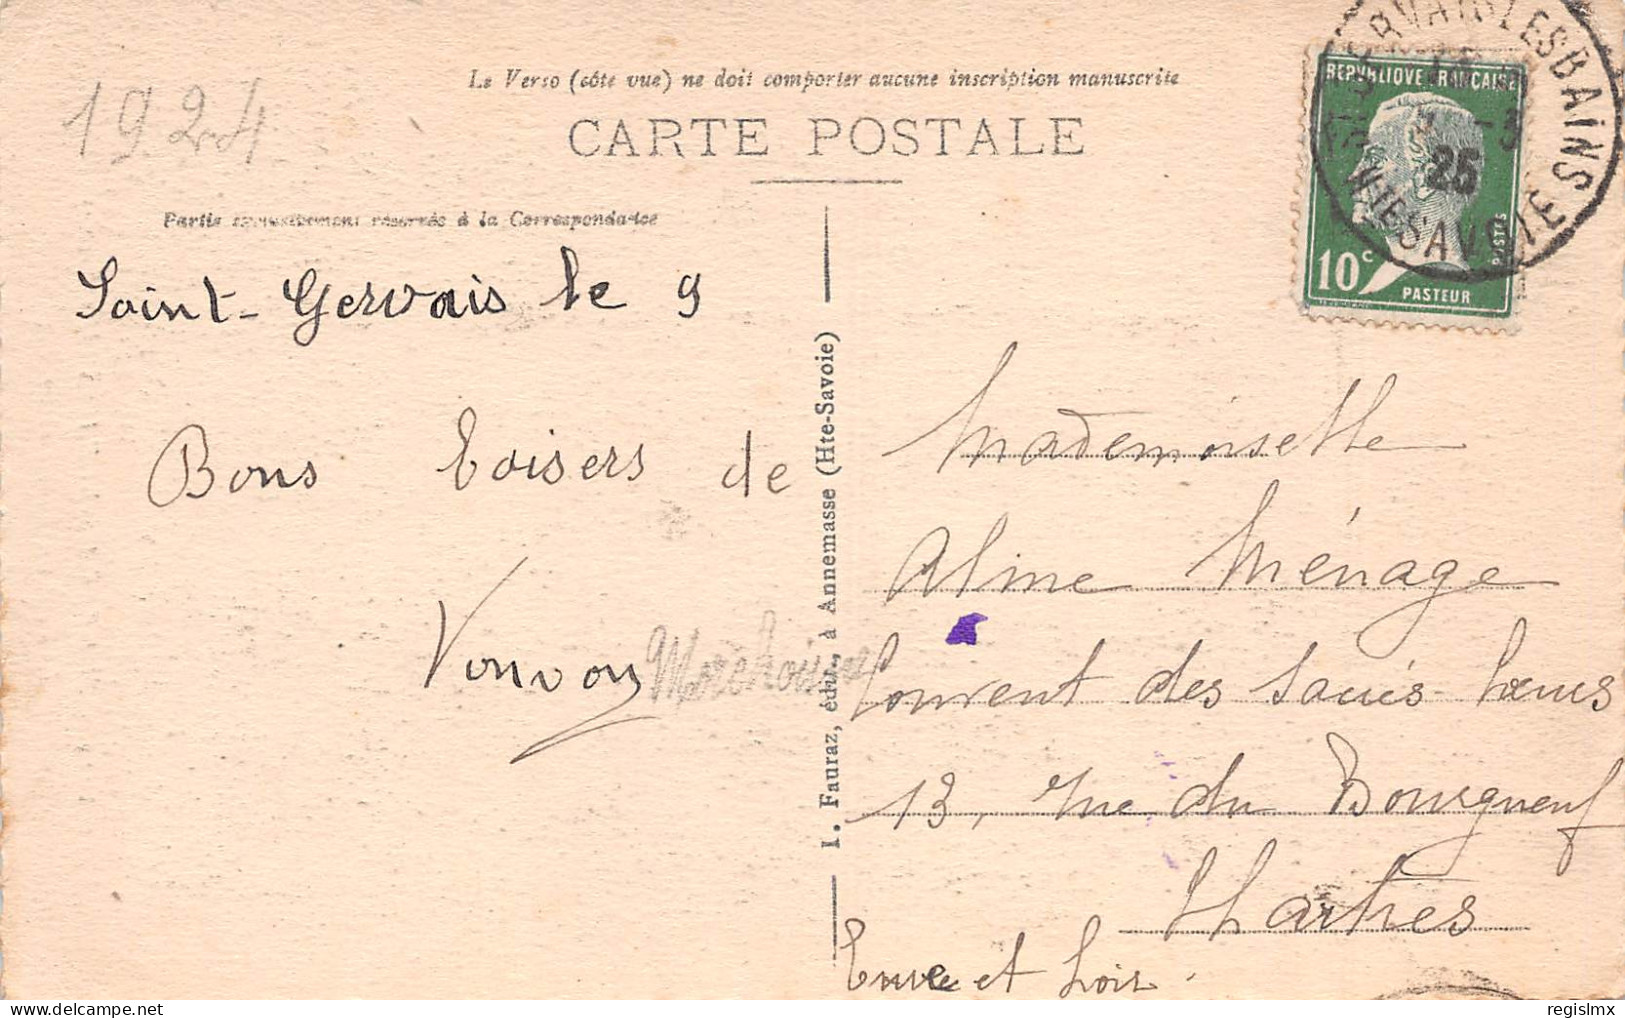 1924
Le Verso (côté vue) ne doit comporter aucune inscription manuscrite
CARTE POSTALE
Partie exclusivement réservée à la Correspondance
Saint-Gervais le 9
Bons baisers de
Vonvon
I. Fauraz, édit., à Annemasse (Hte-Savoie)
REPUBLIQUE FRANÇAISE
10c
PASTEUR
POSTES
RVAIS LES BAINS
25
HTE SAVOIE
Mademoiselle
Aline Ménage
Couvent des Sacrés-Coeurs
13, rue du Bourgneuf
Chartres
Eure et Loir.
regislmx